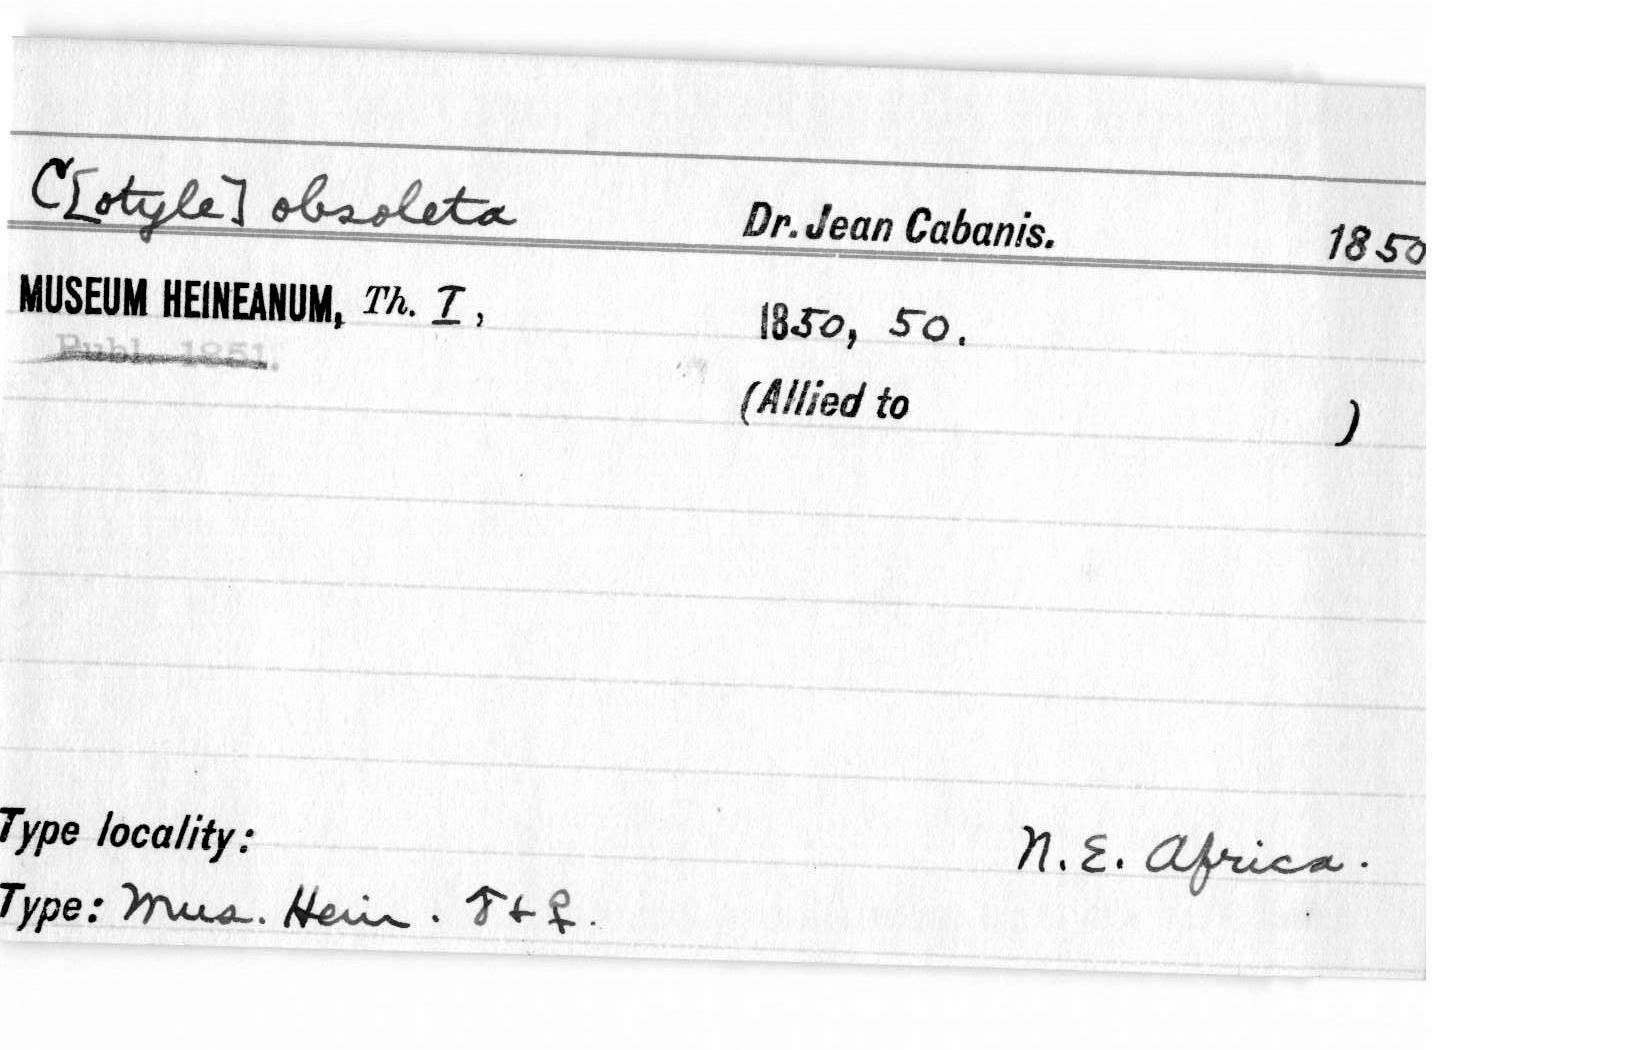 C[otyle] obsoleta Dr. Jean Cabanis. 1850
MUSEUM HEINEANUM, Th. I, 1850, 50.
Publ. 1851.
(Allied to )
Type locality: N. E. Africa.
Type: Mus. Hein. ♂ + ♀.